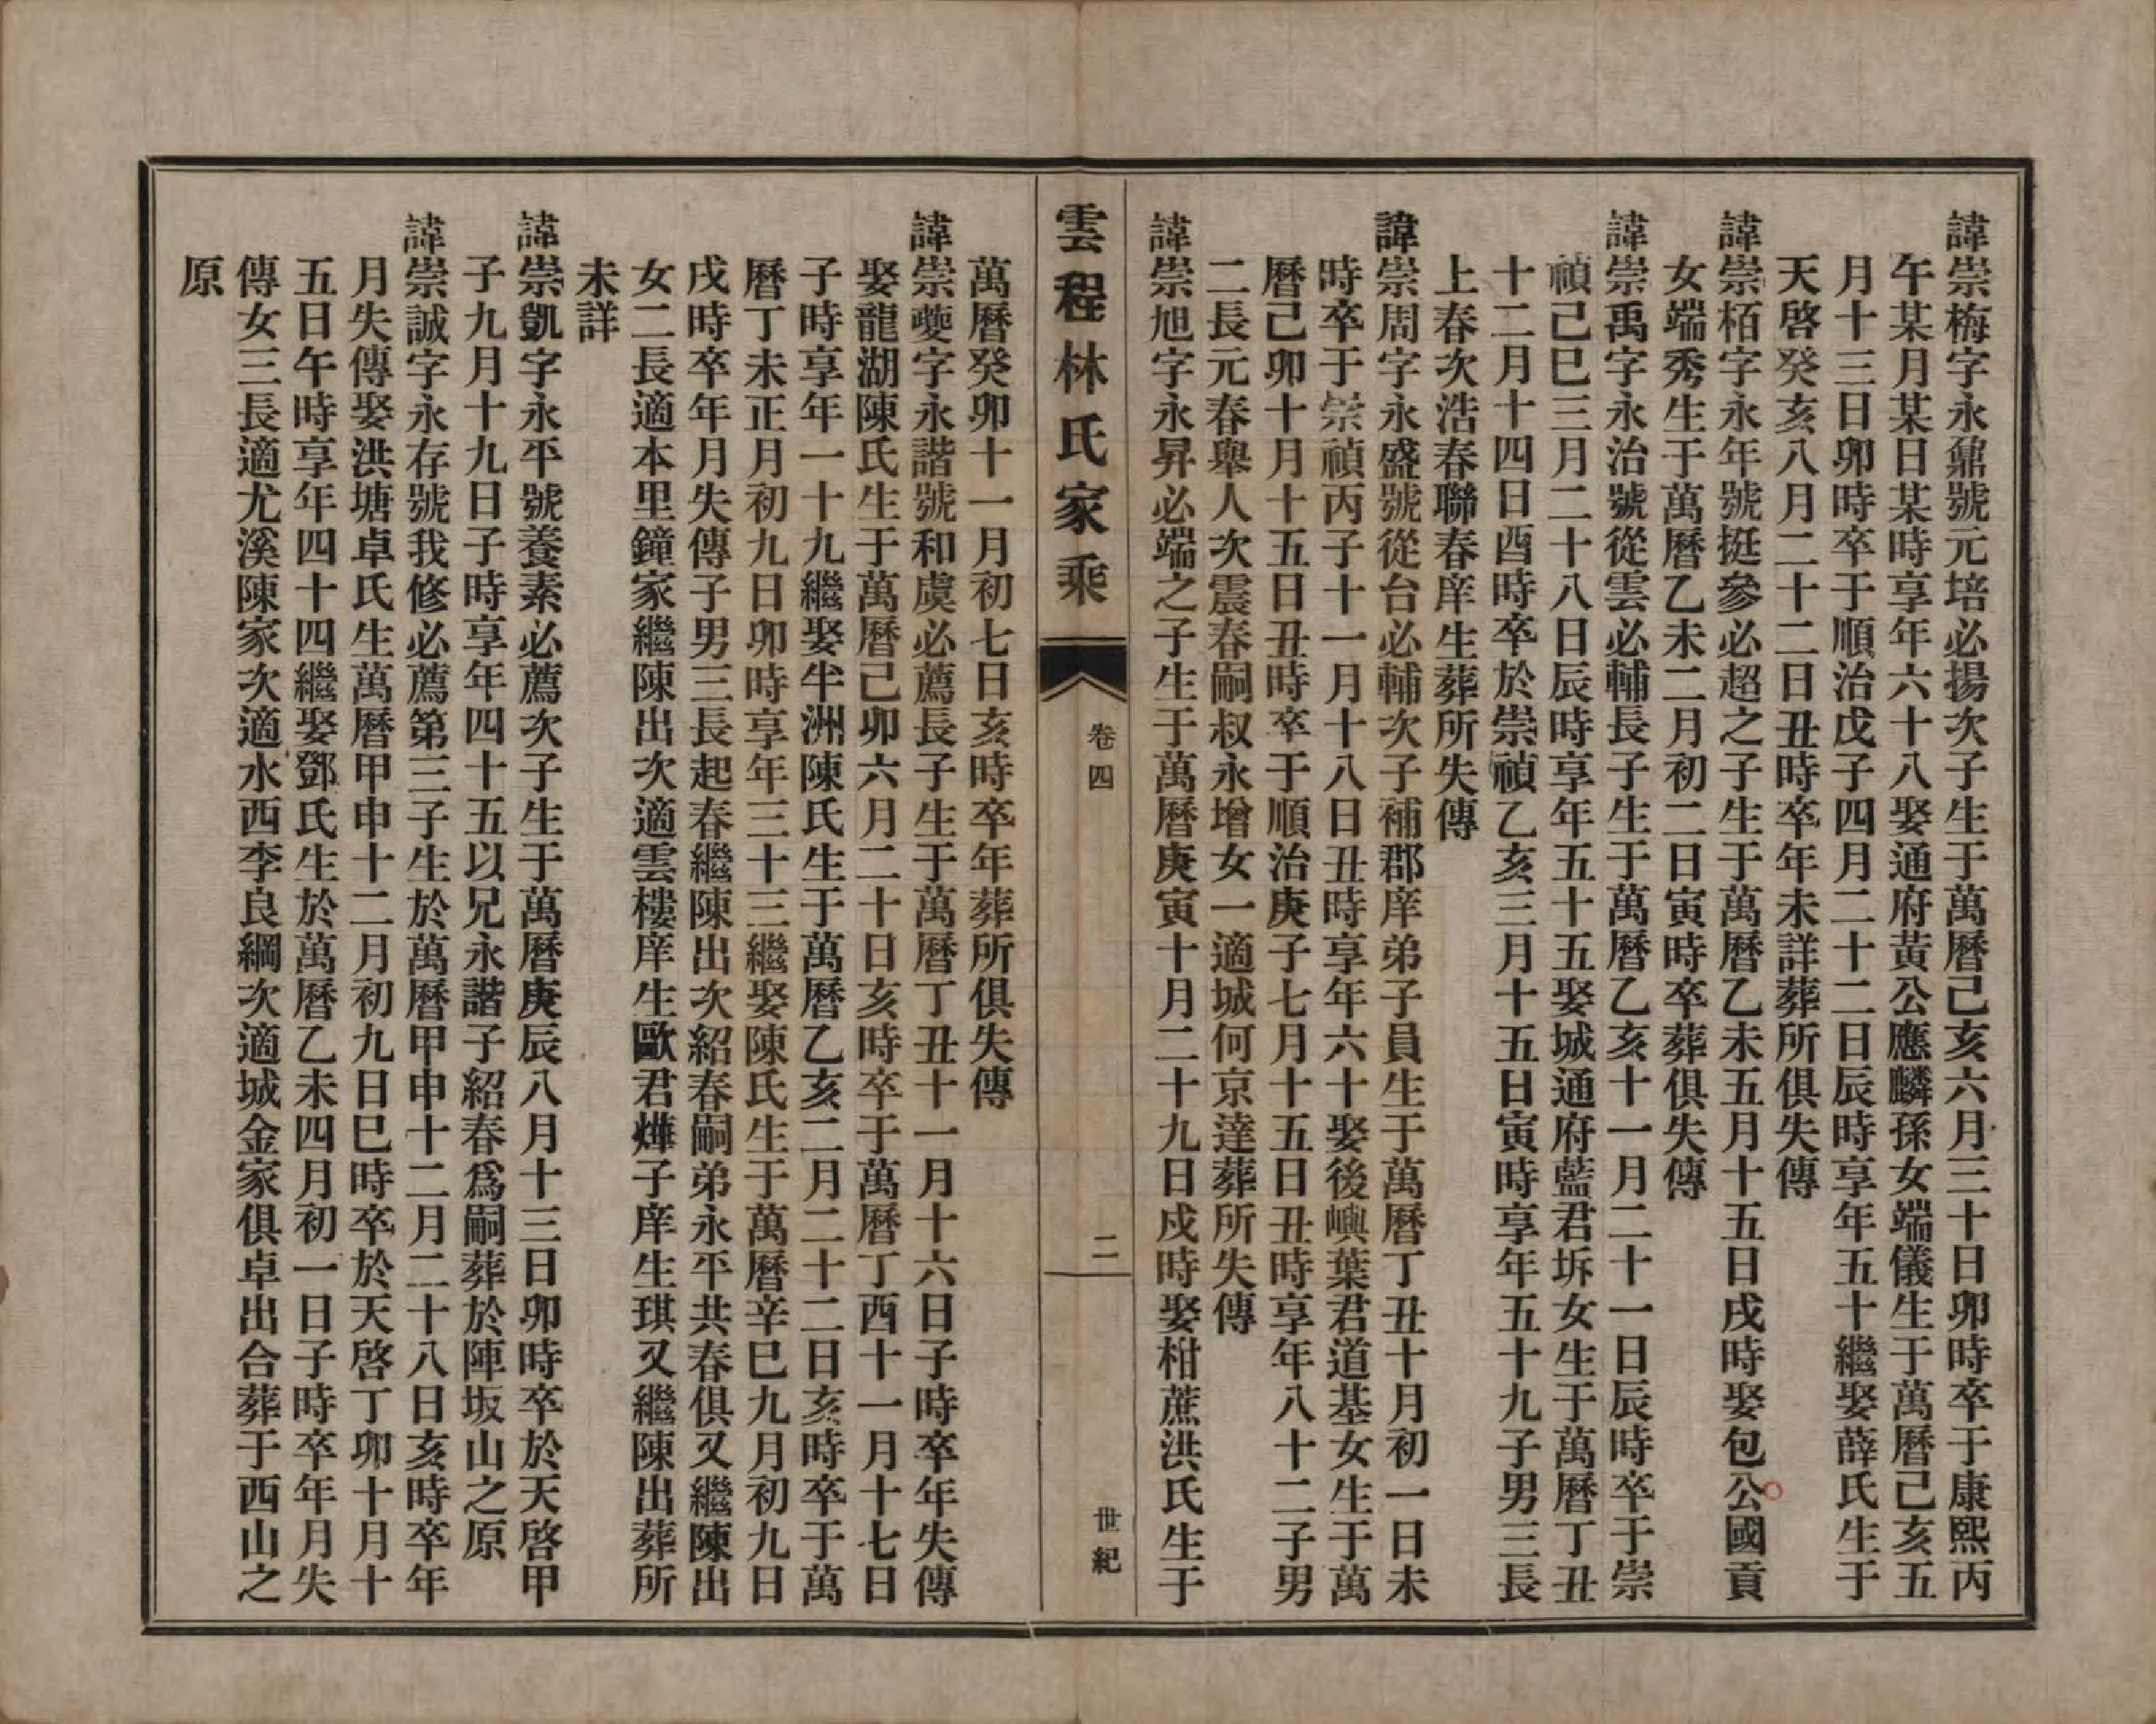 諱崇梅字永鼐號元培必揚次子生于萬曆己亥六月三十日卯時卒于康熙丙
午某月某日某時享年六十八娶通府黃公應麟孫女端儀生于萬曆己亥五
月十三日卯時卒于順治戊子四月二十二日辰時享年五十繼娶薛氏生于
天啓癸亥八月二十二日丑時卒年未詳葬所俱失傳
諱崇栢字永年號挺參必超之子生于萬曆乙未五月十五日戌時娶包公國貢
女端秀生于萬曆乙未二月初二日寅時卒葬俱失傳
諱崇禹字永治號從雲必輔長子生于萬曆乙亥十一月二十一日辰時卒于崇
禎己巳三月二十八日辰時享年五十五娶城通府藍君坼女生于萬曆丁丑
十二月十四日酉時卒於崇禎乙亥三月十五日寅時享年五十九子男三長
上春次浩春聯春庠生葬所失傳
諱崇周字永盛號從台必輔次子補郡庠弟子員生于萬曆丁丑十月初一日未
時卒于崇禎丙子十一月十八日丑時享年六十娶後嶼葉君道基女生于萬
曆己卯十月十五日丑時卒于順治庚子七月十五日丑時享年八十二子男
二長元春舉人次震春嗣叔永增女一適城何京達葬所失傳
諱崇旭字永昇必端之子生于萬曆庚寅十月二十九日戌時娶柑蔗洪氏生于
雲程林氏家乘
卷四
二
世紀
萬曆癸卯十一月初七日亥時卒年葬所俱失傳
諱崇夔字永諧號和虞必薦長子生于萬曆丁丑十一月十六日子時卒年失傳
娶龍湖陳氏生于萬曆己卯六月二十日亥時卒于萬曆丁酉十一月十七日
子時享年一十九繼娶半洲陳氏生于萬曆乙亥二月二十二日亥時卒于萬
曆丁未正月初九日卯時享年三十三繼娶陳氏生于萬曆辛巳九月初九日
戌時卒年月失傳子男三長起春繼陳出次紹春嗣弟永平共春俱又繼陳出
女二長適本里鐘家繼陳出次適雲樓庠生歐君燁子庠生琪又繼陳出葬所
未詳
諱崇凱字永平號養素必薦次子生于萬曆庚辰八月十三日卯時卒於天啓甲
子九月十九日子時享年四十五以兄永諧子紹春爲嗣葬於陣坂山之原
諱崇誠字永存號我修必薦第三子生於萬曆甲申十二月二十八日亥時卒年
月失傳娶洪塘卓氏生萬曆甲申十二月初九日巳時卒於天啓丁卯十月十
五日午時享年四十四繼娶鄧氏生於萬曆乙未四月初一日子時卒年月失
傳女三長適尤溪陳家次適水西李良綱次適城金家俱卓出合葬于西山之
原